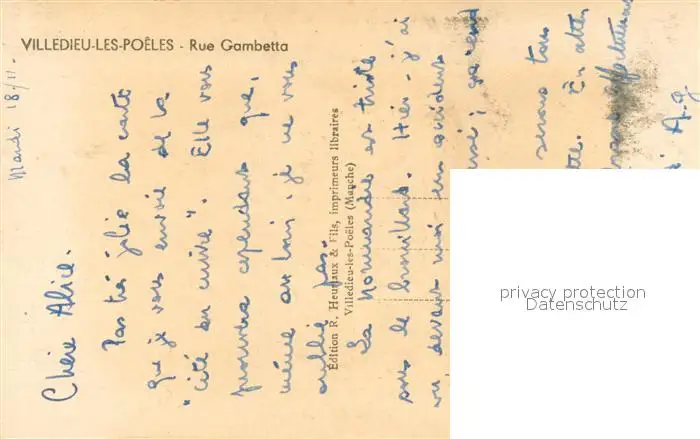 VILLEDIEU-LES-POÊLES - Rue Gambetta
Mardi 18/11.
Chère Alice.
Pas très jolie la carte
que je vous envoie de la
"cité du cuivre". Elle vous
prouvera cependant que,
même au loin, je ne vous
oublie pas.
La Normandie est triste
sous le brouillard. Hier j'ai
vu, devant moi un accident
serons tous
En atten
affectueus
A.G
Édition R. Heurtaux & Fils, imprimeurs libraires
Villedieu-les-Poêles (Manche)
privacy protection
Datenschutz